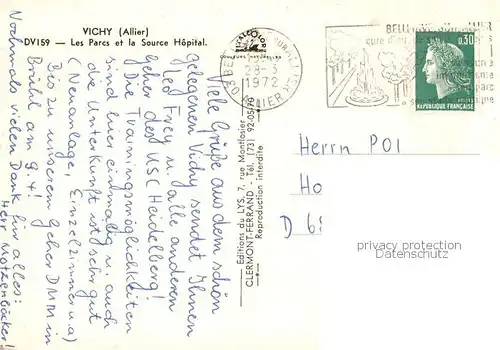 VICHY (Allier)
DV159 — Les Parcs et la Source Hôpital.
Viele Grüße aus dem schön
gelegenen Vichy sendet Ihnen
Led Frey u. alle anderen
Geher des USC Heidelberg!
Die Trainingsmöglichkeiten
sind hier einmalig u. auch
die Unterkunft ist sehr gut
(Neuanlage, Einzelzimmer u.a)
Bis zu unserem Geher DMM in
Brühl am 9.4!
Nochmals vielen Dank für alles:
Herr
Editions du LYS, 7, rue Montlosier
CLERMONT-FERRAND - Tél. (73) 92-05
Reproduction interdite
28-3
1972
ALLIER
BELL
0,30
REPUBLIQUE FRANÇAISE
Herrn POI
Ho
D 69
privacy protection
watermark